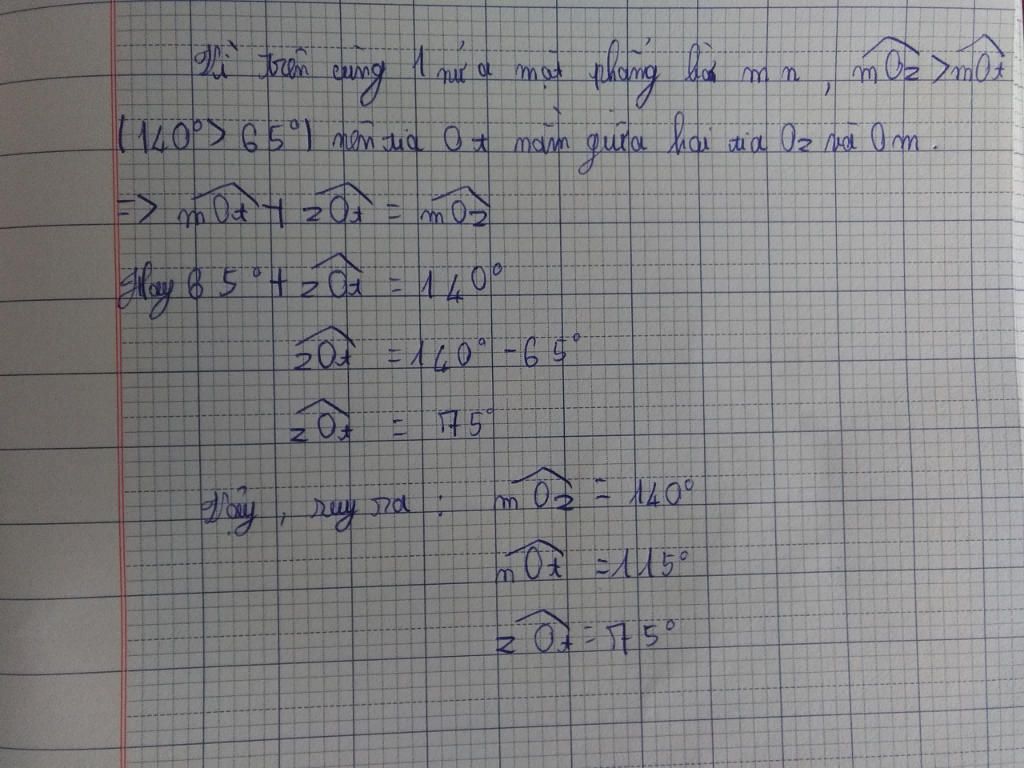 Vì trên cùng 1 nửa mặt phẳng bờ mn, mOz > mOt
(140° > 65°) nên tia Ot nằm giữa hai tia Oz và Om.
=> mOt + zOt = mOz
Hay 65° + zOt = 140°
zOt = 140° - 65°
zOt = 75°
Vậy, suy ra : mOz = 140°
nOt = 115°
zOt = 75°